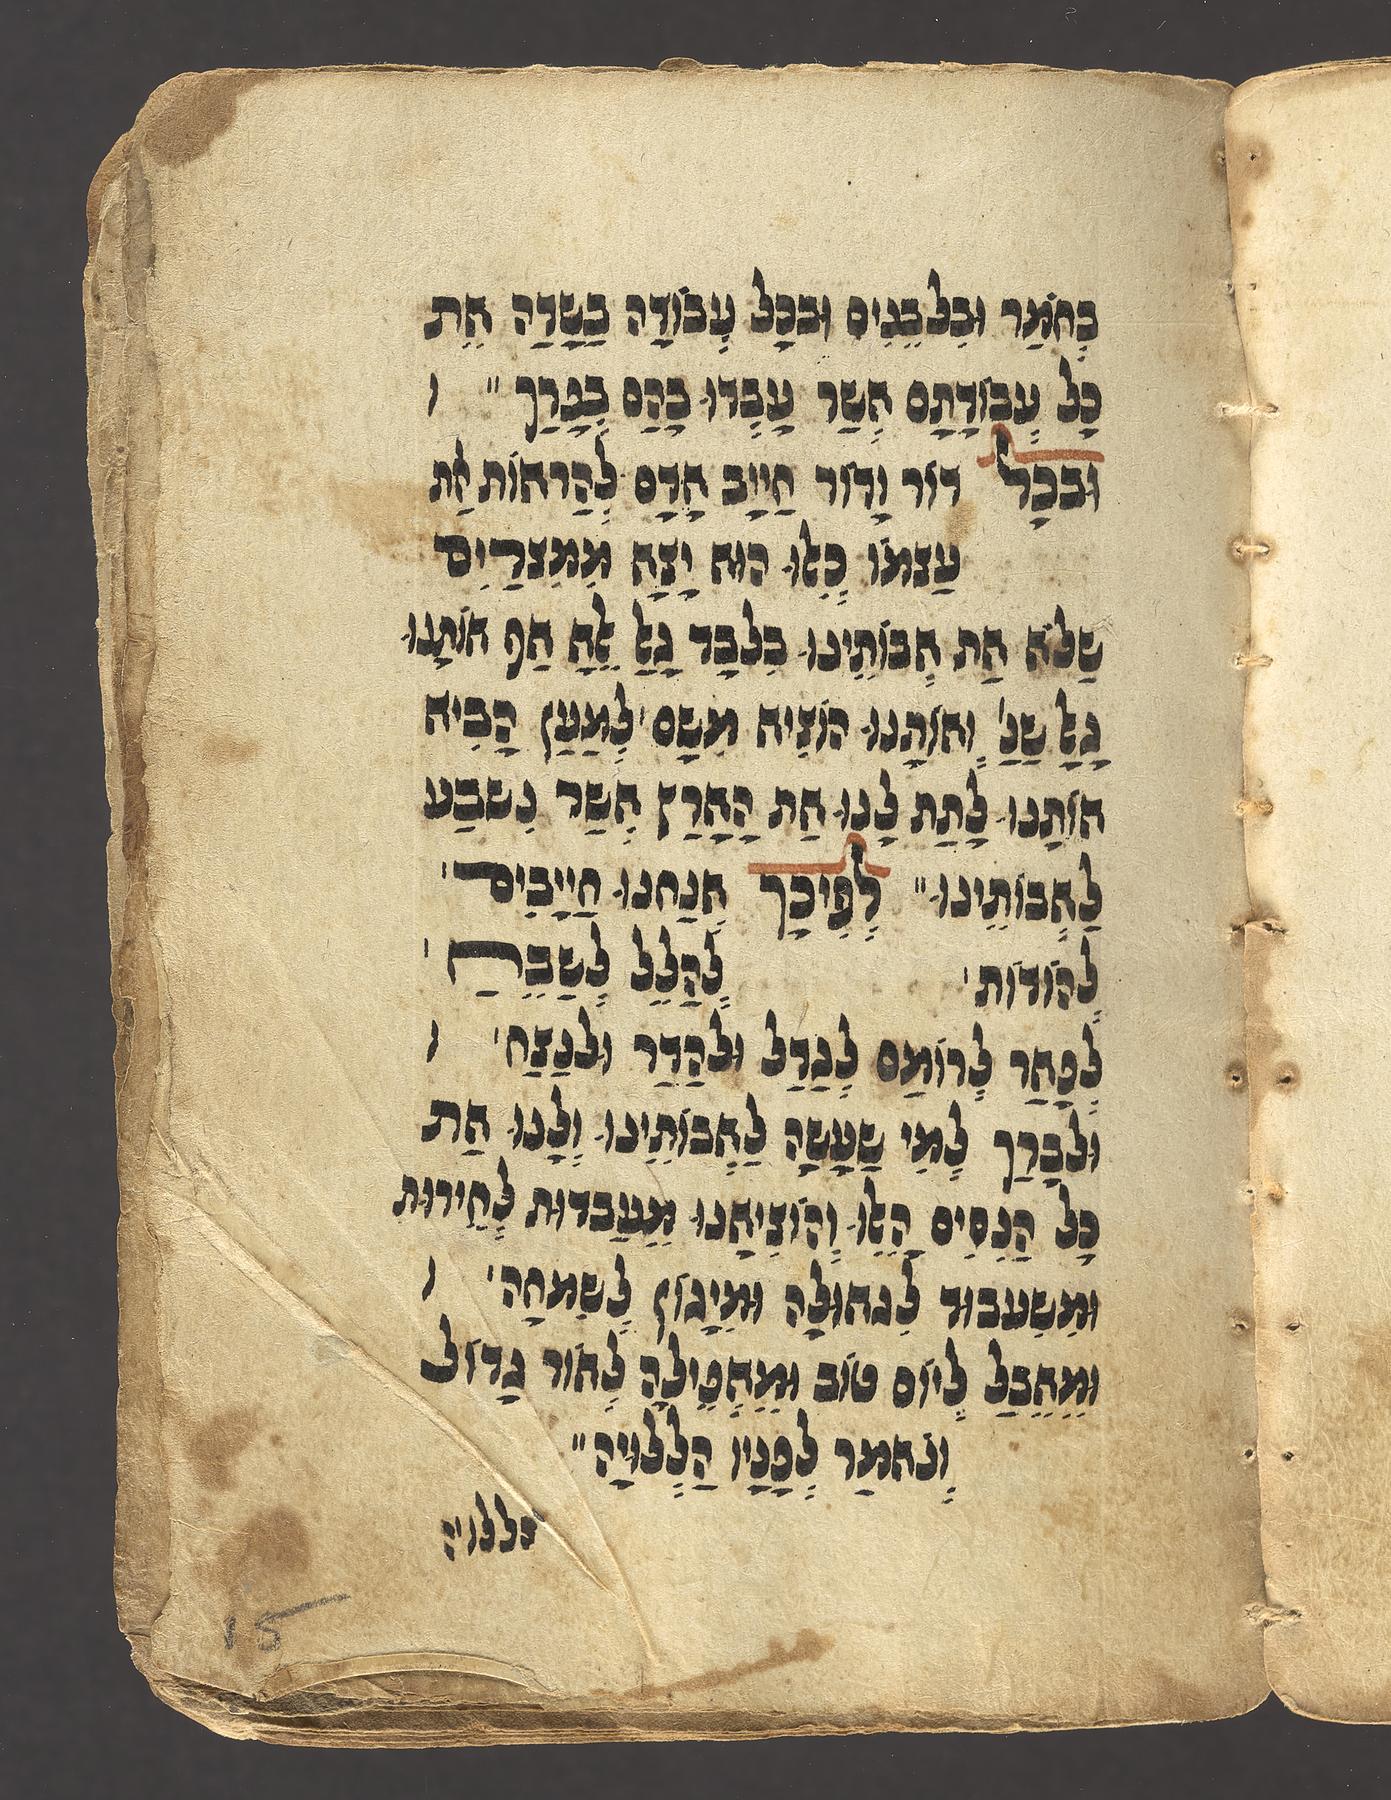 בְּחֹמֶר וּבִלְבֵנִים וּבְכָל עֲבוֹדָה בַּשָּׂדֶה אֵת
כָּל עֲבוֹדָתָם אֲשֶׁר עָבְדוּ בָהֶם בְּפָרֶךְ ״
וּבְכָל דּוֹר וָדוֹר חַיָּיב אָדָם לְהַרְאוֹת אֶת
עַצְמוֹ כְּאִלּוּ הוּא יָצָא מִמִּצְרַיִם
שֶׁלֹּא אֶת אֲבוֹתֵינוּ בִּלְבַד גָּאַל אֶלָּא אַף אוֹתָנוּ
גָּאַל שֶׁנֶּ׳ וְאוֹתָנוּ הוֹצִיא מִשָּׁם ׳ לְמַעַן הָבִיא
אוֹתָנוּ לָתֶת לָנוּ אֶת הָאָרֶץ אֲשֶׁר נִשְׁבַּע
לַאֲבוֹתֵינוּ ״ לְפִיכָךְ אֲנַחְנוּ חַיָּיבִים ׳
לְהוֹדוֹת ׳ לְהַלֵּל לְשַׁבֵּחַ ׳
לְפָאֵר לְרוֹמֵם לְגַדֵּל וּלְהַדֵּר וּלְנַצֵּחַ ׳
וּלְבָרֵךְ לְמִי שֶׁעָשָׂה לַאֲבוֹתֵינוּ וְלָנוּ אֶת
כָּל הַנִּסִּים הָאֵלּוּ וְהוֹצִיאָנוּ מֵעַבְדוּת לְחֵירוּת
וּמִשִּׁעְבּוּד לִגְאוּלָּה וּמִיָּגוֹן לְשִׂמְחָה ׳
וּמֵאֵבֶל לְיוֹם טוֹב וּמֵאֲפֵילָה לְאוֹר גָּדוֹל
וְנֹאמַר לְפָנָיו הַלְלוּיָהּ ״
הללויה
15